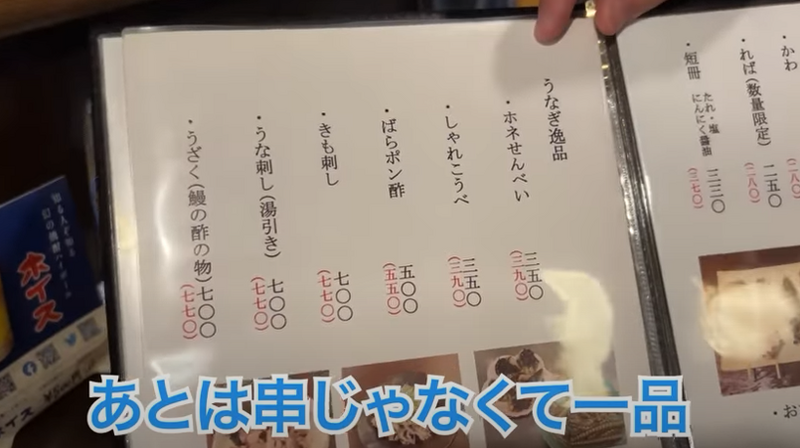 ・かわ
(二八〇)
・れば(数量限定)
二五〇
(二八〇)
・短冊 たれ・塩
にんにく醤油
三三〇
(三七〇)
うなぎ逸品
・ホネせんべい
三五〇
(三九〇)
・しゃれこうべ
三五〇
(三九〇)
・ばらポン酢
五〇〇
(五五〇)
・きも刺し
七〇〇
(七七〇)
・うな刺し(湯引き)
七〇〇
(七七〇)
・うざく(鰻の酢の物)
七〇〇
(七七〇)
・お
知る人ぞ知る
幻の焼酎ハイボール
ホイス
ホイス
あとは串じゃなくて一品